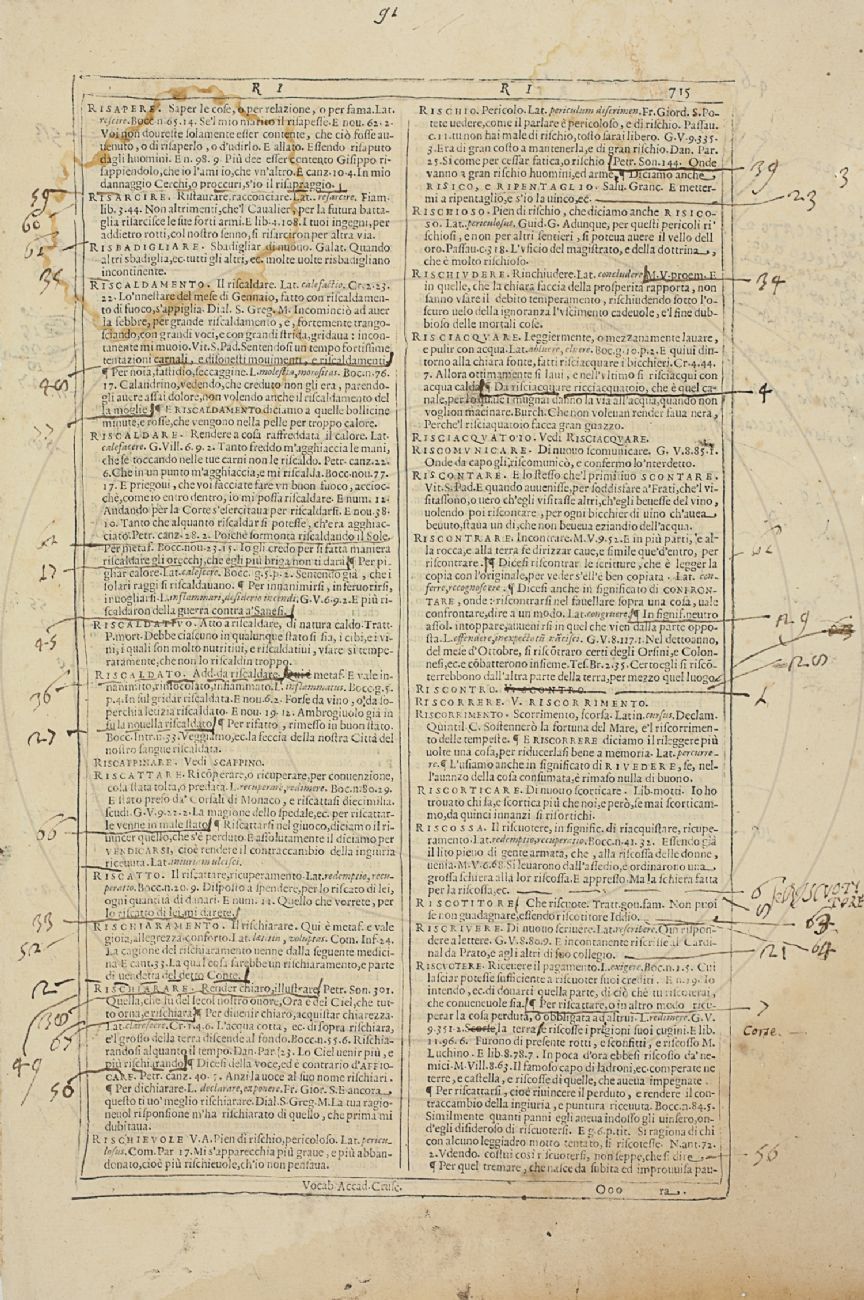 91
R I
R I
715
RISAPERE. Saper le cose, o per relazione, o per fama. Lat.
rescire. Bocc. n. 65. 14. Se'l mio marito il risapesse. E nou. 62. 2.
Voi non doureste solamente esser contente, che ciò fosse au-
uenuto, o di risaperlo, o d'udirlo. E allato. Essendo risaputo
dagli huomini. E n. 98. 9. Più dee esser contento Gisippo ri-
sappiendolo, che io l'ami io, che vn'altro. E canz. 10. 4. In mio
dannaggio Cerchi, o proccuri, s'io il risapraggio.
RISARCIRE. Ristaurare, racconciare. Lat. resarcire. Fiam.
lib. 3. 44. Non altrimenti, che'l Caualier, per la futura batta-
glia risarcisce le sue forti armi. E lib. 4. 108. I tuoi ingegni, per
addietro rotti, col nostro senno, si risarciron per altra via.
RISBADIGLIARE. Sbadigliar di nuouo. Galat. Quando
altri sbadiglia, ec. tutti gli altri, ec. molte uolte risbadigliano
incontinente.
RISCALDAMENTO. Il riscaldare. Lat. calefactio. Cr. 2. 23.
22. Lo'nnestare del mese di Gennaio, fatto con riscaldamen-
to di fuoco, s'appiglia. Dial. S. Greg. M. Incominciò ad auer
la febbre, per grande riscaldamento, e, fortemente trango-
sciando, con grandi voci, e con grandi strida, gridaua: incon-
tanente mi muoio. Vit. S. Pad. Sentendosi un tempo fortissime
tentazioni carnali, e disonesti mouimenti, e riscaldamenti
¶ Per noia, fastidio, seccaggine. L. molestia, morositas. Bocc. n. 76.
17. Calandrino, vedendo, che creduto non gli era, parendo-
gli auere assai dolore, non volendo anche il riscaldamento del
la moglie. ¶ E RISCALDAMENTO diciamo a quelle bollicine
minute, e rosse, che vengono nella pelle per troppo calore.
RISCALDARE. Rendere a cosa raffreddata il calore. Lat.
calefacere. G. Vill. 6. 9. 2. Tanto freddo m'agghiaccia le mani,
che se toccando nelle tue carni non le riscaldo. Petr. canz. 22.
6. Che in un punto m'agghiaccia, e mi riscalda. Bocc. nou. 77.
17. E priegoui, che voi facciate fare vn buon fuoco, accioc-
chè, come io entro dentro, io mi possa riscaldare. E num. 12.
Andando per la Corte s'esercitaua per riscaldarsi. E nou. 38.
10. Tanto che alquanto riscaldar si potesse, ch'era agghiac-
ciato. Petr. canz. 28. 2. Poichè sormonta riscaldando il Sole.
Per metaf. Bocc. nou. 23. 15. Io gli credo per sì fatta maniera
riscaldare gli orecchj, che egli più briga non ti darà ¶ Per pi-
gliar calore. Lat. calescere. Bocc. g. 5. p. 2. Sentendo già, che i
solari raggi si riscaldauano. ¶ Per innanimirsi, inferuorirsi,
inuogliarsi. L. inflammari, desiderio incendi. G. V. 6. 9. 2. E più
riscaldaron della guerra contra a' Sanesi.
RISCALDATIVO. Atto a riscaldare, di natura caldo. Tratt.
P. mort. Debbe ciascuno in qualunque stato si sia, i cibi, e i vi-
ni, i quali son molto nutritiui, e riscaldatiui, vsare sì tempe-
ratamente, che non lo riscaldin troppo.
RISCALDATO. Add. da riscaldare. Qui è metaf. E vale in-
nanimito, rinfocolato, infiammato. L. inflammatus. Bocc. g. 5.
p. 4. In sul gridar riscaldata. E nou. 6. 2. Forse da vino, o da so-
perchia letizia riscaldato. E nou. 19. 12. Ambrogiuolo già in
su la nouella riscaldato. ¶ Per rifatto, rimesso in buon stato.
Bocc. Intr. n. 33. Veggiamo, ec. la feccia della nostra Città del
nostro sangue riscaldata.
RISCAPPINARE. Vedi SCAPPINO.
RISCATTARE. Ricoperare, o ricuperare, per conuenzione,
cosa stata tolta, o predata. L. recuperare, redimere. Bocc. n. 80. 29.
E stato preso da' Corsali di Monaco, e riscattasi diecimilia.
scudi. G. V. 9. 22. 2. La magione dello spedale, ec. per riscattar-
le venne in male stato. ¶ Riscattarsi nel giuoco, diciamo il ri-
uincer quello, che s'è perduto. E assolutamente il diciamo per
VENDICARSI, cioè rendere il contraccambio della ingiuria
riceuuta. Lat. iniuriam ulcisci.
RISCATTO. Il riscattare, ricuperamento. Lat. redemptio, recu-
peratio. Bocc. n. 20. 9. Disposto a spendere, per lo riscato di lei,
ogni quantità di danari. E num. 12. Quello che vorrete, per
lo riscatto di lei mi darete.
RISCHIARAMENTO. Il rischiarare. Qui è metaf. e vale
gioia, allegrezza, conforto. Lat. laetitia, voluptas. Com. Inf. 24.
La cagione del rischiaramento uenne dalla seguente medici-
na. E cant. 33. La qual cosa sarebbe un rischiaramento, e parte
di uendetta del detto Conte.
RISCHIARARE. Render chiaro, illustrare. Petr. Son. 301.
Quella, che fu del secol nostro onore, Ora è del Ciel, che tut-
to orna, e rischiara. ¶ Per diuenir chiaro, acquistar chiarezza.
Lat. clarescere. Cr. 1. 4. 6. L'acqua cotta, ec. di sopra rischiara,
e'l grosso della terra discende al fondo. Bocc. n. 55. 6. Rischia-
randosi alquanto il tempo. Dan. Par. 23. Lo Ciel uenir più, e
più rischiarando. ¶ Dicesi della voce, ed è contrario d'AFFIO-
CARE. Petr. canz. 40. 7. Anzi la uoce al suo nome rischiari.
¶ Per dichiarare. L. declarare, exponere. Fr. Gior. S. E ancora
questo ti uo' meglio rischiarare. Dial. S. Greg. M. La tua ragio-
neuol risponsione m'ha rischiarato di quello, che prima mi
dubitaua.
RISCHIEVOLE V. A. Pien di rischio, pericoloso. Lat. pericu-
losus. Com. Par 17. Mi s'apparecchia più graue, e più abban-
donato, cioè più rischieuole, ch'io non pensaua.
RISCHIO. Pericolo. Lat. periculum discrimen. Fr. Giord. S. Po-
tete uedere, come il parlare è pericoloso, e di rischio. Passau.
c. 11. tu non hai male di rischio, tosto sarai libero. G. V. 9. 335.
3. Era di gran costo a mantenerla, e di gran rischio. Dan. Par.
25. Sì come per cessar fatica, o rischio. Petr. Son. 144. Onde
vanno a gran rischio huomini, ed arme. ¶ Diciamo anche
RISICO, e RIPENTAGLIO. Salu. Granc. E metter-
mi a ripentaglio, e s'io la uinco, ec.
RISCHIOSO. Pien di rischio, che diciamo anche RISICO-
SO. Lat. periculosus. Guid. G. Adunque, per questi pericoli ri-
schiosi, e non per altri sentieri, si poteua auere il vello dell
oro. Passau. c. 318. L'vficio del magistrato, e della dottrina,
che è molto rischioso.
RISCHIVDERE. Rinchiudere. Lat. concludere. M. V. proem. E
in quelle, che la chiara faccia della prosperità rapporta, non
sanno vsare il debito temperamento, rischiudendo sotto l'o-
scuro uelo della ignoranza l'vscimento cadeuole, e'l fine dub-
bioso delle mortali cose.
RISCIACQVARE. Leggiermente, o mezzanamente lauare,
e pulir con acqua. Lat. abluere, eluere. Boc. g. 10. p. 2. E quiui din-
torno alla chiara fonte, fatti risciacquare i bicchieri. Cr. 4. 44.
7. Allora ottimamente si laui, e nell'vltimo si risciacqui con
acqua calda. ¶ Da risciacquare ricciacquatoio, che è quel ca-
nale, per lo quale i mugnai danno la via all'acqua, quando non
voglion macinare. Burch. Che non voleuan render faua nera,
Perche'l risciaquatoio facea gran guazzo.
RISCIACQVATOIO. Vedi RISCIACQVARE.
RISCOMVNICARE. Di nuouo scomunicare. G. V. 8. 85. 1.
Onde da capo gli riscomunicò, e confermo lo'nterdetto.
RISCONTARE. E lo stesso che'l primi suo SCONTARE.
Vit. S. Pad. E quando auuenisse, per soddisfare a' Frati, che'l vi-
sitassono, o uero ch'egli visitasse altri, ch'egli beuesse del vino,
uolendo poi riscontare, per ogni bicchier di uino ch'auea
beuuto, staua un dì, che non beueua eziandio dell'acqua.
RISCONTRARE. Incontrare. M. V. 9. 52. E in più parti, e al-
la rocca, e alla terra fe dirizzar caue, e simile que' d'entro, per
riscontrare. ¶ Dicesi riscontrar le scritture, che è legger la
copia con l'originale, per veder s'ell'e ben copiata. Lat. con-
ferre, recognoscere. ¶ Dicesi anche in significato di CONFRON-
TARE, onde: riscontrarsi nel fauellare sopra una cosa, uale
confrontare, dire a un modo. Lat. congruere. ¶ In signif. neutro
assol. intoppare, abattersi in quel che vien dalla parte oppo-
sta. L. offendere, inexpectatū nācisci. G. V. 8. 117. 1. Nel detto anno,
del mese d'Ottobre, si riscōtraro certi degli Orsini, e Colon-
nesi, ec. e cōbatterono insieme. Tes. Br. 2. 35. Certo egli si riscō-
terrebbono dall'altra parte della terra, per mezzo quel luogo.
RISCONTRO. V. SCONTRO.
RISCORRERE. V. RISCORRIMENTO.
RISCORRIMENTO. Scorrimento, scorsa. Latin. cursus. Declam.
Quintil. C. Sostennerò la fortuna del Mare, e'l riscorrimen-
to delle tempeste. ¶ E RISCORRERE diciamo il rileggere più
uolte una cosa, per riducerlasi bene a memoria. Lat. percurre-
re. ¶ L'usiamo anche in significato di RIVEDERE, se, nel-
l'auanzo della cosa consumata, è rimaso nulla di buono.
RISCORTICARE. Di nuouo scorticare. Lib. motti. Io ho
trouato chi sa, e scortica più che noi, e però, se mai scorticam-
mo, da quinci innanzi si riscortichi.
RISCOSSA. Il riscuotere, in signific. di riacquistare, ricupe-
ramento. Lat. redemptio, recuperatio. Bocc. n. 41. 32. Essendo già
il lito pieno di gente armata, che, alla riscossa delle donne,
uenia. M. V. 6. 68. Si leuarono dall'assedio, e ordinarono una
grossa schiera alla lor riscossa. E appresso. Ma la schiera fatta
per la riscossa, ec.
RISCOTITORE. Che riscuote. Tratt. gou. fam. Non puoi
se non guadagnare, essendo riscotitore Iddio.
RISCRIVERE. Di nuouo scriuere. Lat. rescribere. O in rispon-
dere a lettere. G. V. 8. 80. 9. E incontanente riscrisse al Cardi-
nal da Prato, e agli altri di suo collegio.
RISCVOTERE. Riceuere il pagamento. L. exigere. Boc. n. 1. 5. Cui
lasciar potesse sufficiente a riscuoter suoi crediti. E n. 19. Io
intendo, ec. di donarti quella parte, di ciò che tu riscoterai,
che conueneuole sia. ¶ Per riscattare, o in altro modo ricu-
perar la cosa perduta, o obbligata ad altrui. L. redimere. G. V.
9. 351. 2. Scorse la terra e riscosse i prigioni suoi cugini. E lib.
11. 96. 6. Furono di presente rotti, e sconfitti, e riscosso M.
Luchino. E lib. 8. 78. 7. In poca d'ora ebbesi riscosso da' ne-
mici. M. Vill. 8. 63. Il famoso capo di ladroni, ec. comperate ne
terre, e castella, e riscosse di quelle, che auea impegnate.
¶ Per riscattarsi, cioè riuincere il perduto, e rendere il con-
traccambio della ingiuria, e puntura riceuuta. Bocc. n. 84. 5.
Similmente quanti panni egli auea indosso gli uinsero, on-
d'egli disideroso di riscuotersi. E g. 6. p. tit. Si ragiona di chi
con alcuno leggiadro motto tentato, si riscotesse. N. ant. 72.
2. Vdendo costui così riscuotersi, non seppe, che si dire.
¶ Per quel tremare, che nasce da subita ed improuuisa pau-
Vocab. Accad. Crusc.
Ooo
ra.
59
60
62
38
48
17
45
36
27
66
33
52
67
49
56
39
3
23
34
4
29
28
RISCUOTI
TORE
63
64
21
7
Corse.
56